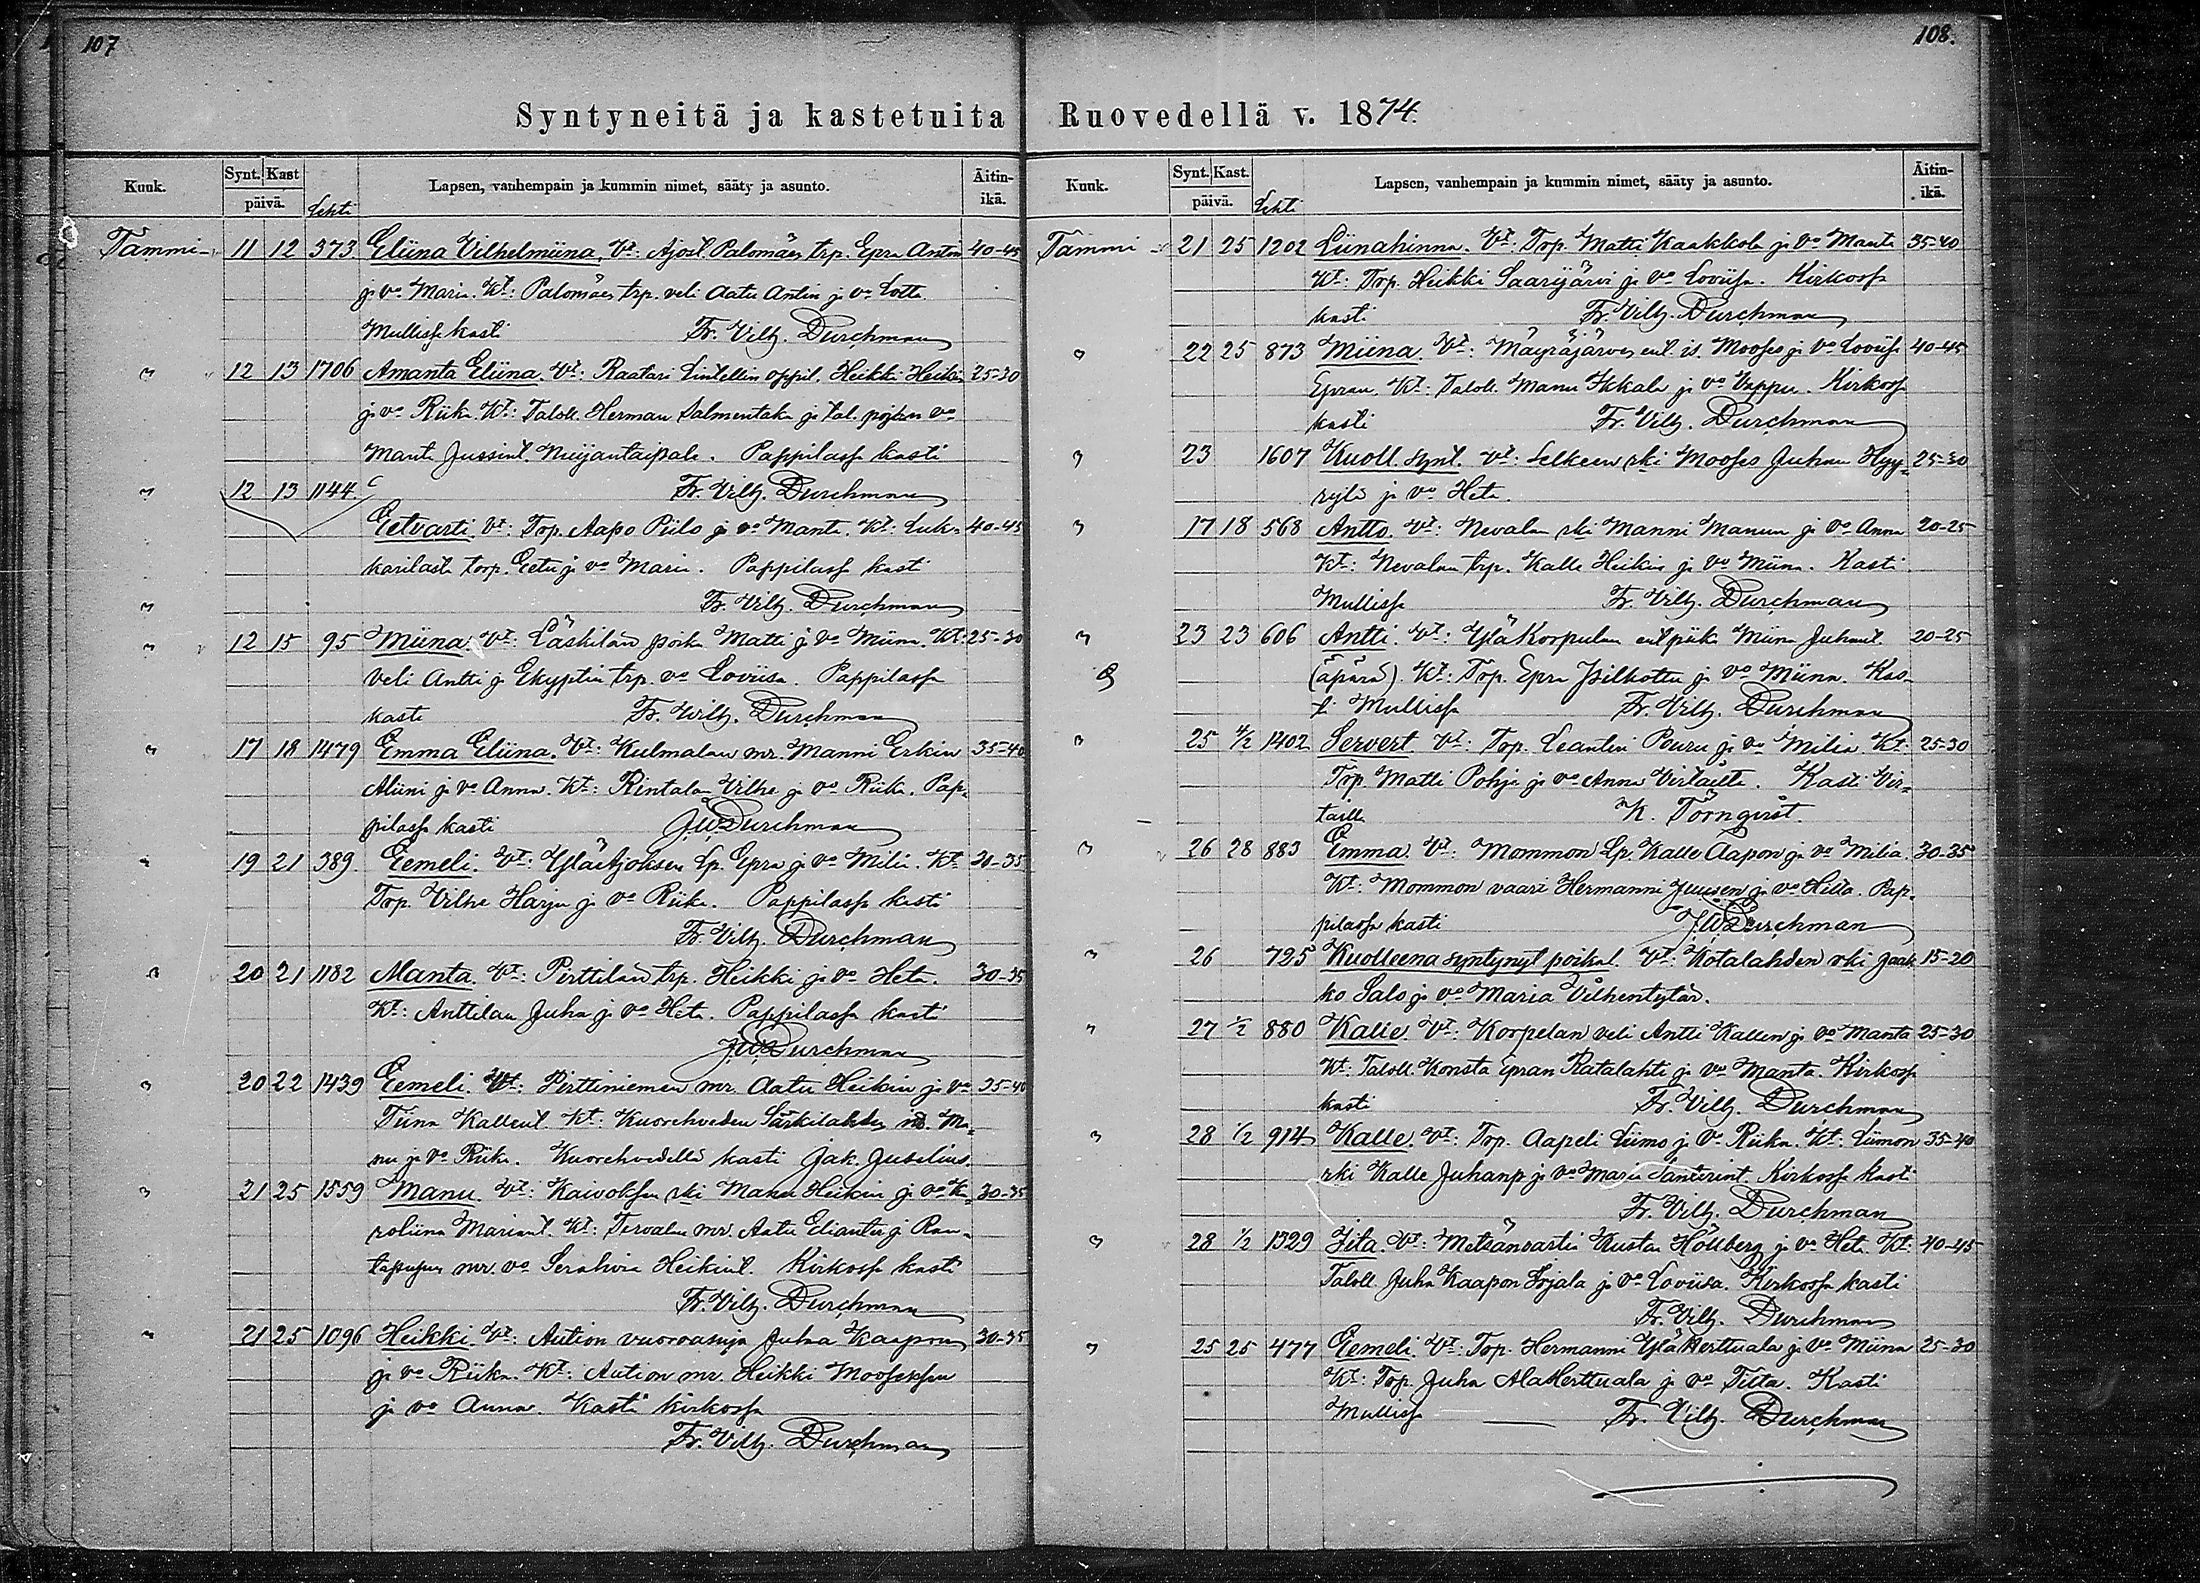 107
Syntyneitä ja kastetuita
Kuuk. Synt. Kast päivä. Lehti Lapsen, vanhempain ja kummin nimet, sääty ja asunto. Äitin-ikä.
Tammi 11 12 373 Eliina Vilhelmiina. Vt: Ajost. Palomäen trp. Epra Antin 40-45
ja vo Maria. Kt: Palomäen trp. veli Aatu Antin ja vo Lotta
Mullissa kasti Fr. Vilh. Durchman
" 12 13 1706 Amanta Eliina. Vt: Raatari Lintellin oppil. Heikki Heikin 25-30
ja vo Riika. Kt: Taloll. Herman Salmentaka ja tal. pojan vo
Manta Jussint. Muijantaipale. Pappilassa kasti
" 12 13 1144 Fr. Vilh. Durchman
Eetvarti. Vt: Trp. Aapo Piilo ja vo Manta. Kt: Luk- 40-45
karilasta torp. Eetu ja vo Maria. Pappilassa kasti
" Fr. Vilh. Durchman
" 12 15 95 Miina. Vt: Läskilän poika Matti ja vo Miina. Kt: 25-30
veli Antti ja Ekyptin trp. vo Loviisa. Pappilassa
kasti Fr. Vilh. Durchman
" 17 18 1479 Emma Eliina. Vt: Kulmalan mr. Manni Erkin 35-40
Aliini ja vo Anna. Kt: Rintalan Vilhe ja vo Riika. Pap-
pilassa kasti J.W. Durchman
" 19 21 389 Eemeli. Vt: YläAjoksen Lp. Epra ja vo Milia. Kt: 30-35
Trp. Vilhe Harju ja vo Riika. Pappilassa kasti
Fr. Vilh. Durchman
" 20 21 1182 Manta. Vt: Pirttilän trp. Heikki ja vo Heta. 30-35
Kt: Anttilan Juha ja vo Heta. Pappilassa kasti
J.W. Durchman
" 20 22 1439 Eemeli. Vt: Pirttiniemen mr. Aatu Heikin ja vo 35-40
Tiina Kallent. Kt: Kuorehveden Särkilahden is. Ma-
nu ja vo Riika. Kuorehvedellä kasti Jak. Juselius.
" 21 25 1559 Manu. Vt: Kaivoksen rki Manu Heikin ja vo Ka- 30-35
roliina Mariant. Kt: Tervalan mr. Aatu Elianter ja Ran-
mr. vo Serahvia Heikint. Kirkossa kasti
Fr. Vilh. Durchman
" 21 25 1096 Heikki. Vt: Aution vuoroasuja Juha Kaapon 30-35
ja vo Riika. Kt: Aution mr. Heikki Mooseksen
ja vo Anna. Kasti kirkossa
Fr. Vilh. Durchman
108.
Ruovedellä v. 1874.
Kuuk. Synt. Kast. päivä. Lehti Lapsen, vanhempain ja kummin nimet, sääty ja asunto. Äitin-ikä.
Tammi 21 25 1202 Liinahinna. Vt: Trp. Matti Kaakkola ja vo Manta 35-40
Kt: Trp. Heikki Saarijärvi ja vo Loviisa. Kirkossa
kasti Fr. Vilh. Durchman
" 22 25 873 Miina. Vt: Mäyräjärven ent. is. Mooses ja vo Loviisa 40-45
Epran. Kt: Taloll. Manu Ikkala ja vo Vappu. Kirkossa
kasti Fr. Vilh. Durchman
" 23 1607 Kuoll. synt. Vt: Selkeen rki Mooses Juhan Hyy- 25-30
rylä ja vo Heta.
" 17 18 568 Antto. Vt: Nevalan rki Manni Manun ja vo Anna 20-25
Kt: Nevalan trp. Kalle Heikin ja vo Miina. Kasti
Mullissa Fr. Vilh. Durchman
" 23 23 606 Antti. Vt: YläKorpulan ent piika Miina Juhant. 20-25
(äpärä). Kt: Trp. Epra Isilkottu ja vo Miina. Kas-
ti Mullissa Fr. Vilh. Durchman
" 25 4/2 1402 Servert. Vt: Trp. Leantin Pouru ja vo Milia. Kt: 25-30
Trp. Matti Pohja ja vo Anna Virtailta. Kasti Vir-
tailla K. Törnqvist.
" 26 28 883 Emma. Vt: Mommon Lp. Kalle Aapon ja vo Milia. 30-35
Kt: Mommon vaari Hermanni Juusen ja vo Hilta. Pap-
pilassa kasti J.W. Durchman
" 26 725 Kuolleena syntynyt poikal. Vt: Kotalahden rki Jaak- 15-20
ko Salo ja vo Maria Vilhentytär.
" 27 1/2 880 Kalle. Vt: Korpelan veli Antti Kallen ja vo Manta 25-30
Kt: Taloll. Konsta Epran Ratalahti ja vo Manta. Kirkossa
kasti Fr. Vilh. Durchman
" 28 1/2 914 Kalle. Vt: Trp. Aapeli Liimo ja vo Riika. Kt: Liimon 35-40
rki Kalle Juhanp. ja vo Maria Santerint. Kirkossa kasti
Fr. Vilh. Durchman
" 28 1/2 1329 Iita. Vt: Metsänvartia Kusta Hållberg ja vo Heta. Kt: 40-45
Taloll. Juha Kaapon Irjala ja vo Loviisa. Kirkossa kasti
Fr. Vilh. Durchman
" 25 25 477 Eemeli. Vt: Trp. Hermanni YläHerttuala ja vo Miina 25-30
Kt: Trp. Juha AlaHerttuala ja vo Titta. Kasti
Mullissa Fr. Vilh. Durchman